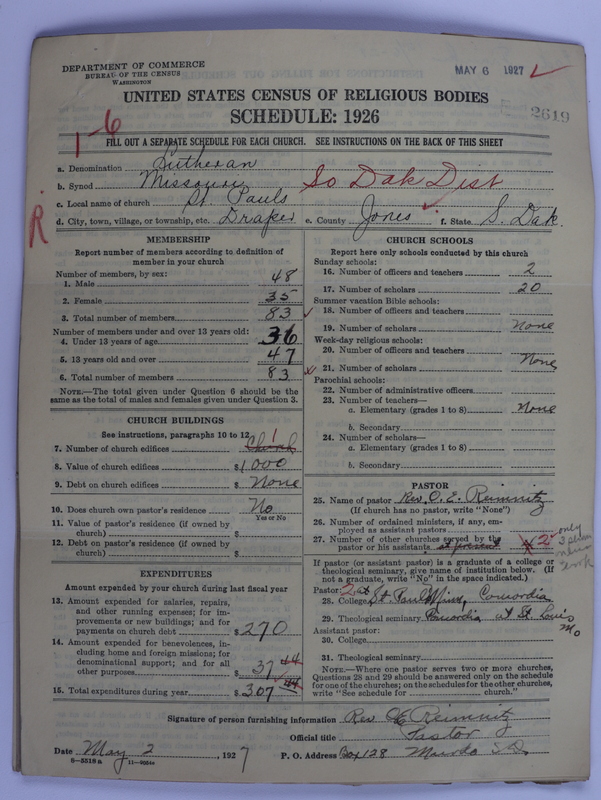 DEPARTMENT OF COMMERCE
BUREAU OF THE CENSUS
WASHINGTON
MAY 6 1927
UNITED STATES CENSUS OF RELIGIOUS BODIES
SCHEDULE: 1926
2619
1-6
FILL OUT A SEPARATE SCHEDULE FOR EACH CHURCH. SEE INSTRUCTIONS ON THE BACK OF THIS SHEET
a. Denomination Lutheran
b. Synod Missouri So Dak Dist
c. Local name of church St. Pauls
d. City, town, village, or township, etc. Draper e. County Jones f. State S. Dak.
R
MEMBERSHIP
Report number of members according to definition of
member in your church
Number of members, by sex:
1. Male 48
2. Female 35
3. Total number of members 83
Number of members under and over 13 years old:
4. Under 13 years of age 36
5. 13 years old and over 47
6. Total number of members 83
NOTE.—The total given under Question 6 should be the
same as the total of males and females given under Question 3.
CHURCH BUILDINGS
See instructions, paragraphs 10 to 12
7. Number of church edifices Church 1
8. Value of church edifices $1000
9. Debt on church edifices $ None
10. Does church own pastor's residence No
Yes or No
11. Value of pastor's residence (if owned by
church) $
12. Debt on pastor's residence (if owned by
church) $
EXPENDITURES
Amount expended by church during last fiscal year
13. Amount expended for salaries, repairs,
and other running expenses; for im-
provements or new buildings; and for
payments on church debt $270
14. Amount expended for benevolences, in-
cluding home and foreign missions; for
denominational support; and for all
other purposes 37 44
15. Total expenditures during year $307 44
CHURCH SCHOOLS
Report here only schools conducted by this church
Sunday schools:
16. Number of officers and teachers 2
17. Number of scholars 20
Summer vacation Bible schools:
18. Number of officers and teachers
19. Number of scholars None
Week-day religious schools:
20. Number of officers and teachers
21. Number of scholars None
Parochial schools:
22. Number of administrative officers
23. Number of teachers—
a. Elementary (grades 1 to 8) None
b. Secondary
24. Number of scholars—
a. Elementary (grades 1 to 8)
b. Secondary
PASTOR
25. Name of pastor Rev. O. E. Reimnitz
(If church has no pastor, write "None")
26. Number of ordained ministers, if any, em-
ployed as assistant pastors
27. Number of other churches served by the
pastor or his assistants at present 2
only
If pastor (or assistant pastor) is a graduate of a college or
theological seminary, give name of institution below. (If
not a graduate, write "No" in the space indicated.)
Pastor:
28. College St. Paul Minn, Concordia
29. Theological seminary Concordia at St. Louis
Mo
Assistant pastor:
30. College
31. Theological seminary
NOTE.—Where one pastor serves two or more churches,
Questions 28 and 29 should be answered only on the schedule
for one of the churches; on the schedules for the other churches,
write "See schedule for church."
Signature of person furnishing information Rev O E Reimnitz
Official title Pastor
Date May 2, 1927 P. O. Address Box 128 Murdo SD
8—5518a 11—9054a